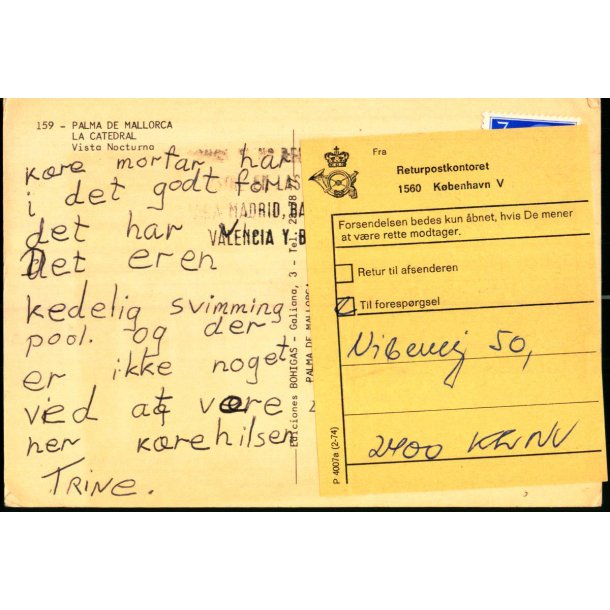 159 - PALMA DE MALLORCA
LA CATEDRAL
Vista Nocturna
kære mortar har
i det godt for
det har vi.
Det er en
kedelig svimming
pool. og der
er ikke noget
ved at være
her kærehilsen
TRINE.
MADRID, BA
VALENCIA Y B
Ediciones BOHIGAS - Galiana, 3 - Tel. 23
PALMA DE MALLORCA
Fra
Returpostkontoret
1560 København V
Forsendelsen bedes kun åbnet, hvis De mener
at være rette modtager.
Retur til afsenderen
Til forespørgsel
Nibevej 50,
2400 KBH NV
P 4007a (2-74)